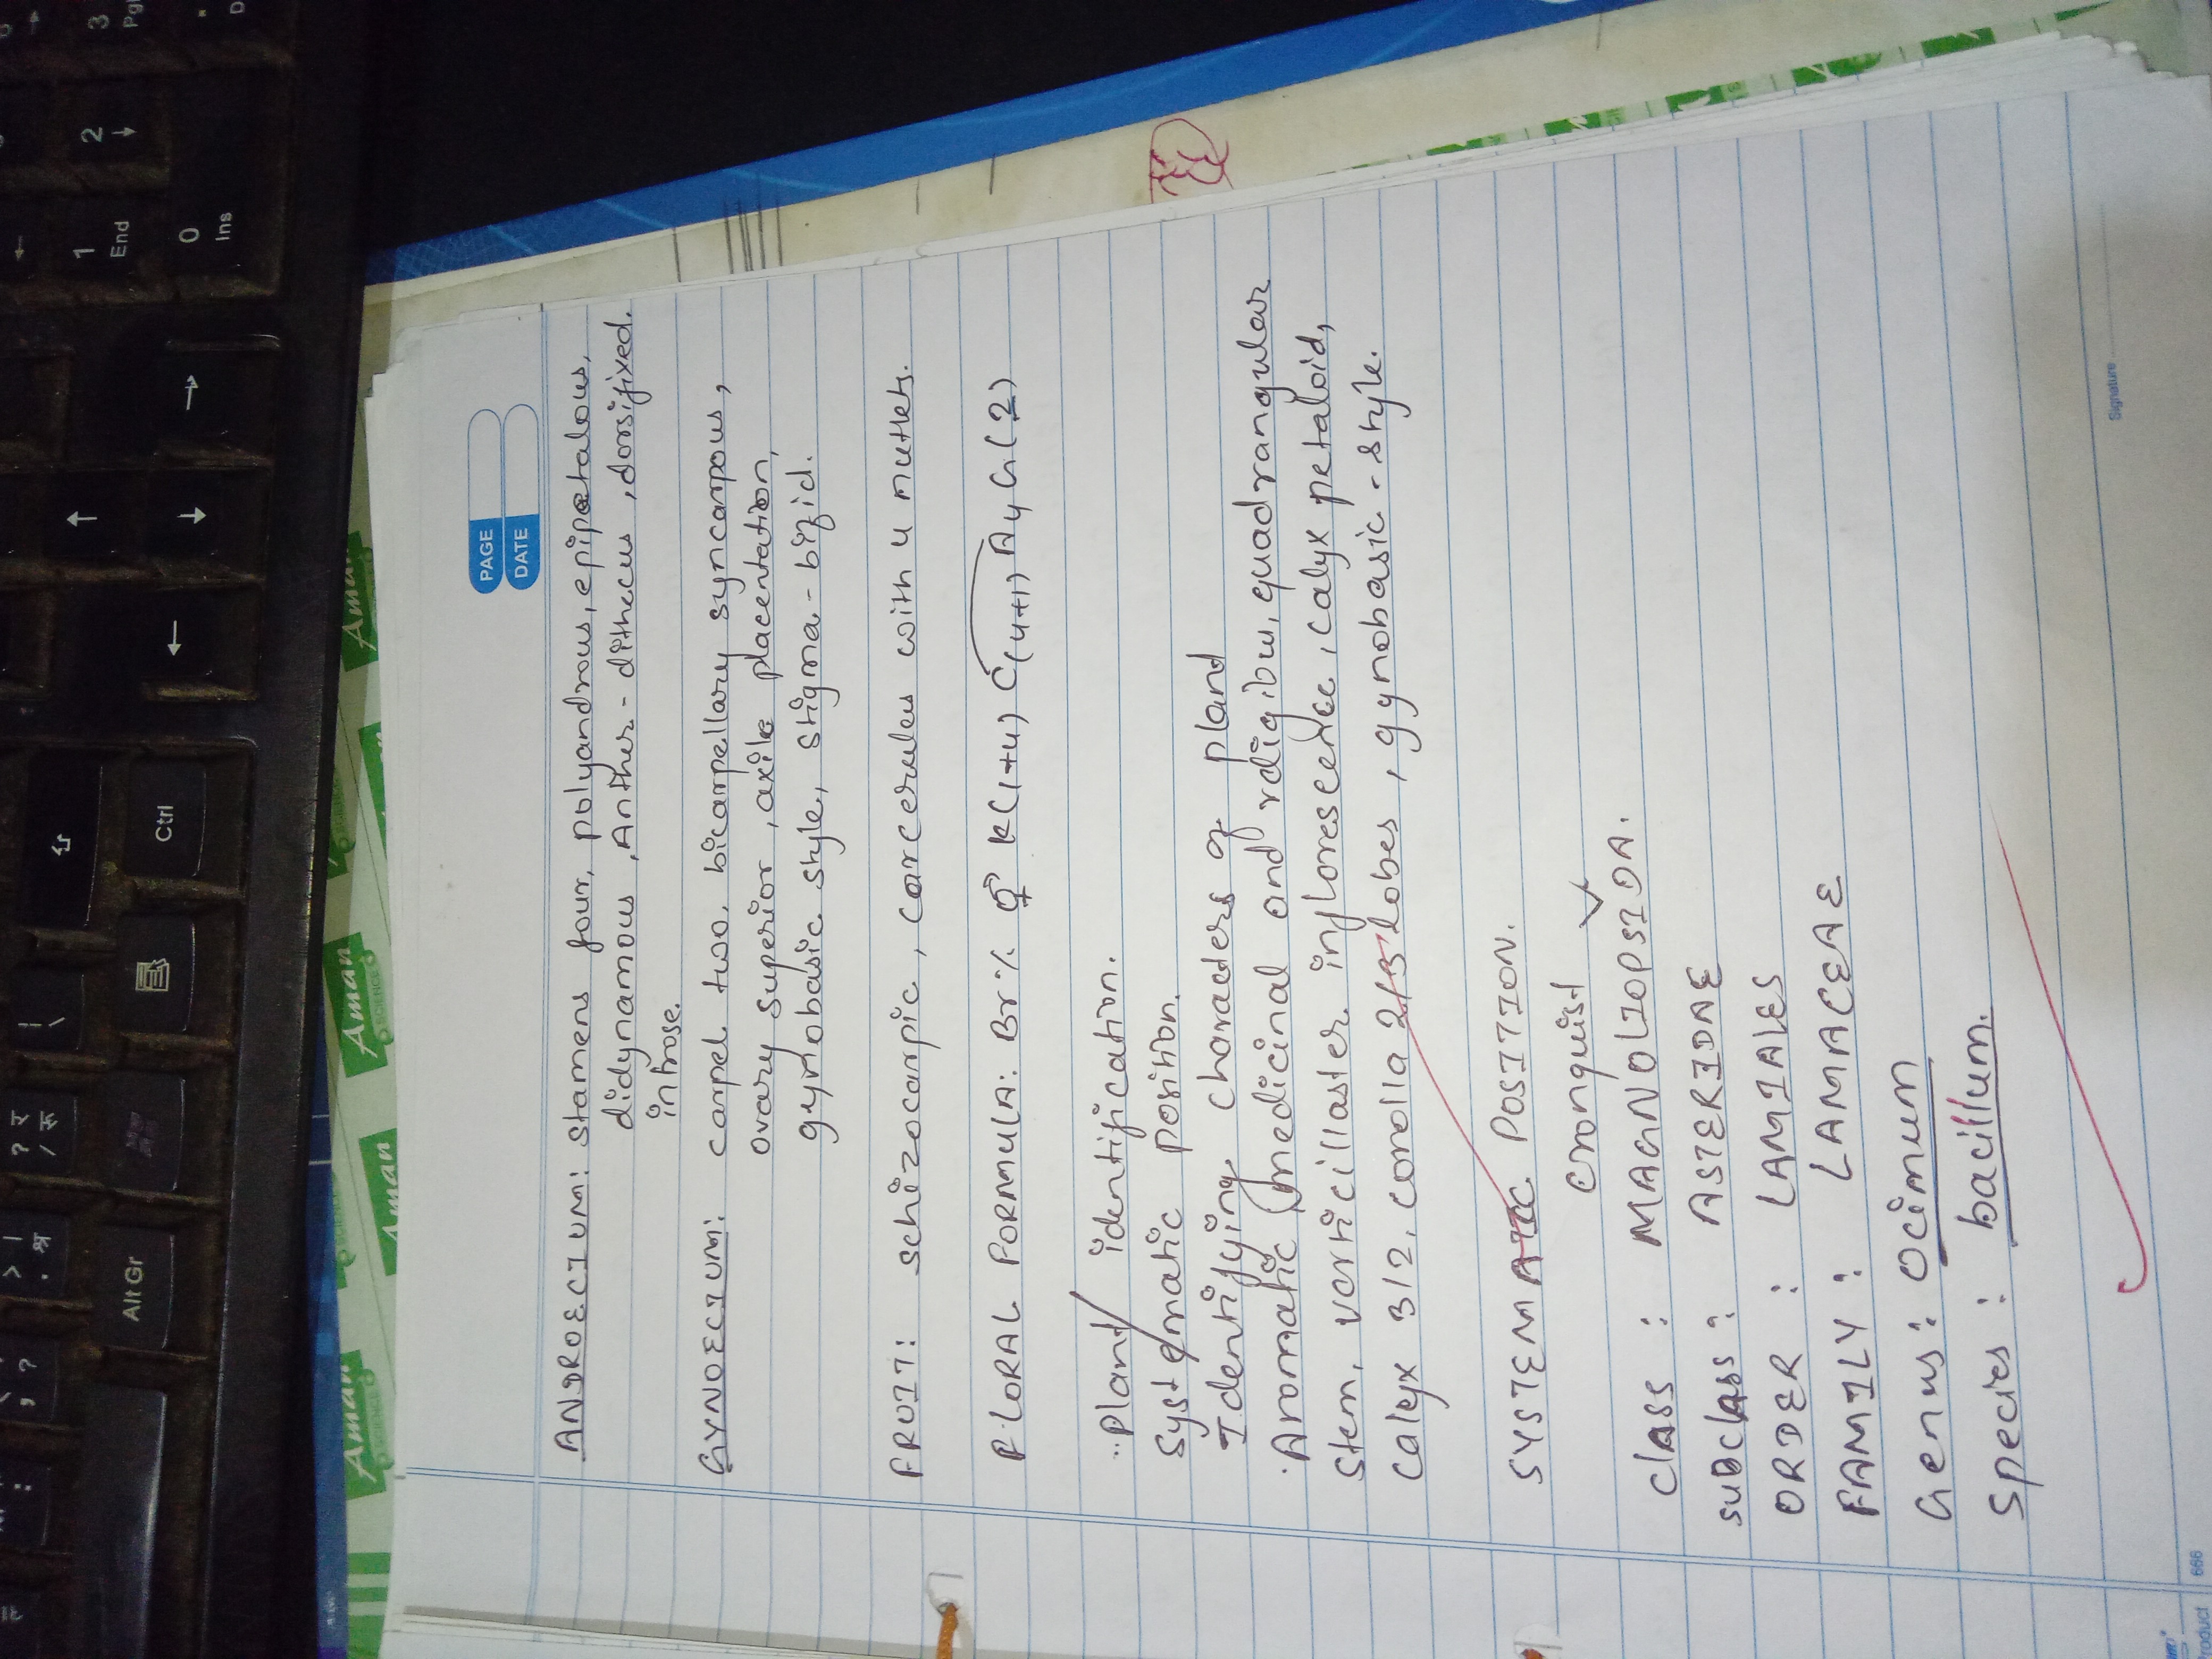 PAGE
DATE
ANDROECIUM: stamens four, polyandrous, epipetalous,
didynamous, Anther - dithecus, dorsifixed.
introse.
GYNOECIUM: carpel two, bicarpellary syncarpous,
ovary superior, axile placentation,
gynobasic style, stigma - bifid.
FRUIT: schizocarpic, carcerulus with 4 nutlets.
FLORAL FORMULA: Br % ⚥ K(1+4) C(4+1) A4 G(2)
plant identification.
Systematic position.
Identifying characters of pland
Aromatic (medicinal and rdigibu, quadrangular
stem, verticillaster inflorescence, calyx petaloid,
calyx 3/2, corolla 2/3 lobes, gynobasic - style.
SYSTEMATIC POSITION.
Cronquist
Class : MAGNOLIOPSIDA.
subclass : ASTERIDAE
ORDER : LAMIALES
FAMILY : LAMACEAE
Genus : Ocimum
Species : bacillum.
Signature
Product 666
Aman
SCIENCE
Aman
Aman
Aman
Aman
Alt Gr
Ctrl
1
End
2
3
0
Ins